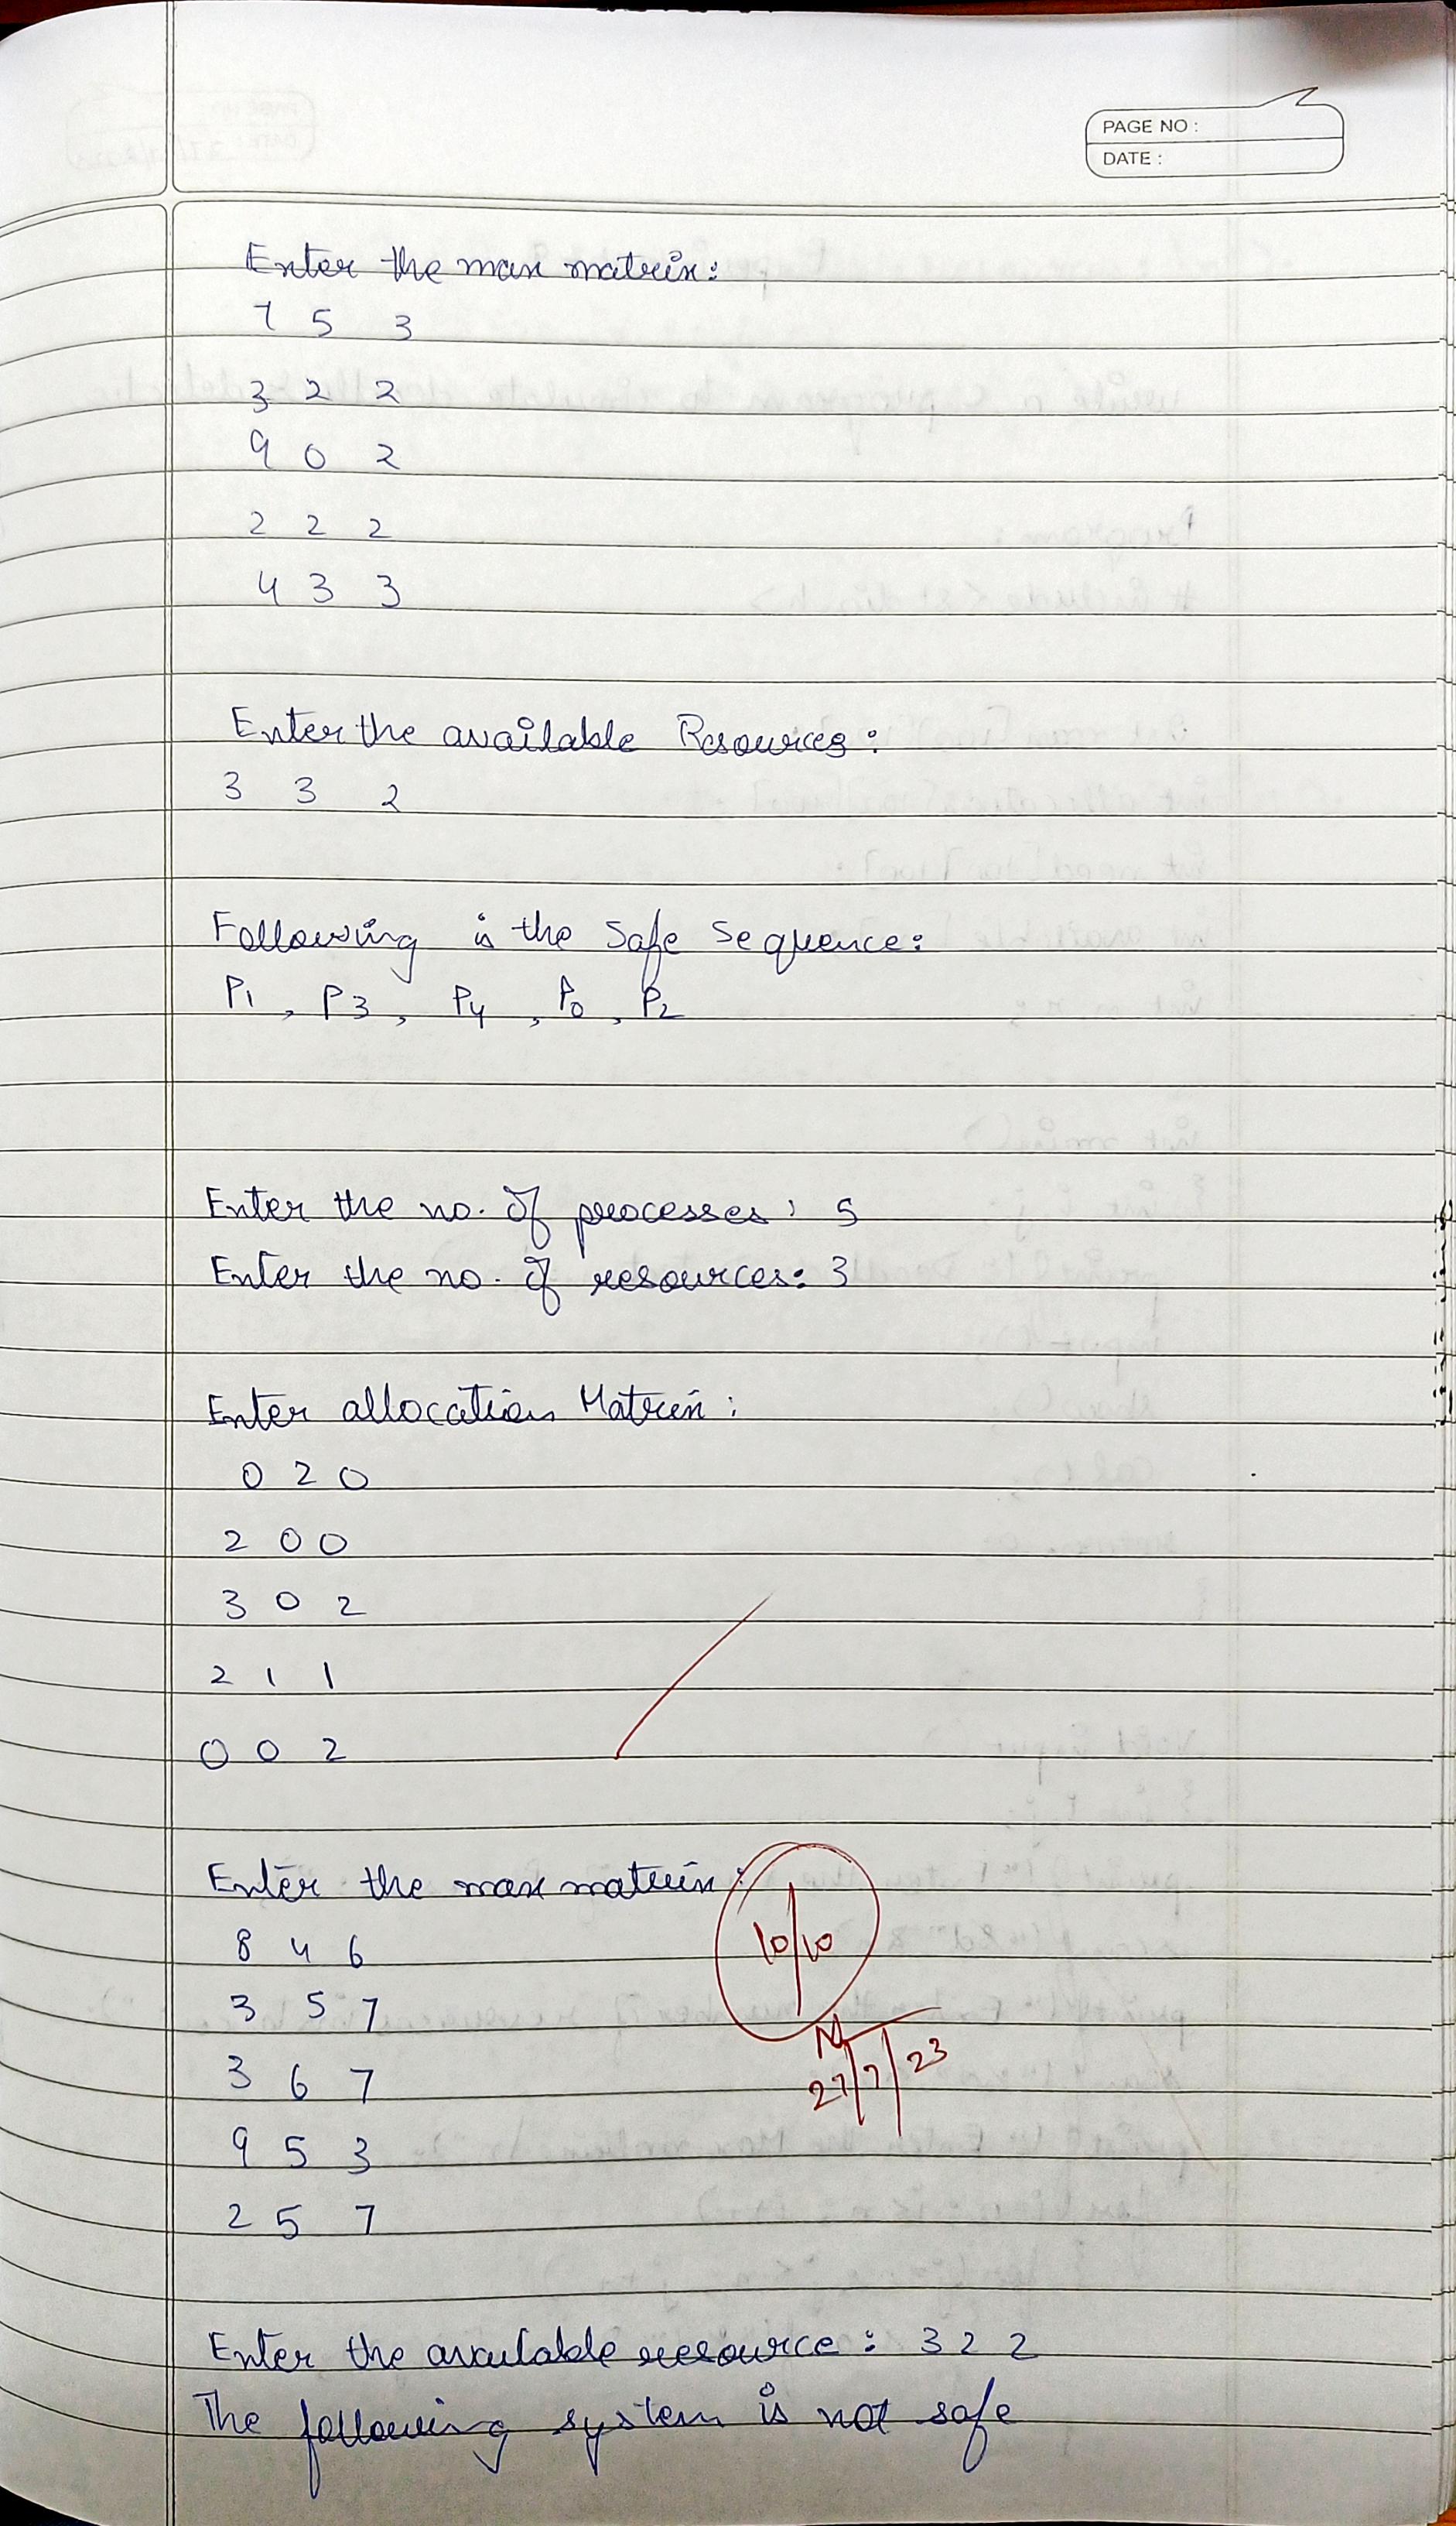 PAGE NO :
DATE :
Enter the max matrix:
7 5 3
3 2 2
9 0 2
2 2 2
4 3 3
Enter the available Resources:
3 3 2
Following is the Safe Sequence:
P1, P3, P4, P0, P2
Enter the no. of processes: 5
Enter the no. of resources: 3
Enter allocation Matrix:
0 2 0
2 0 0
3 0 2
2 1 1
0 0 2
Enter the max matrix:
8 4 6
3 5 7
10/10
3 6 7
27/7/23
9 5 3
2 5 7
Enter the available resource: 3 2 2
The following system is not safe